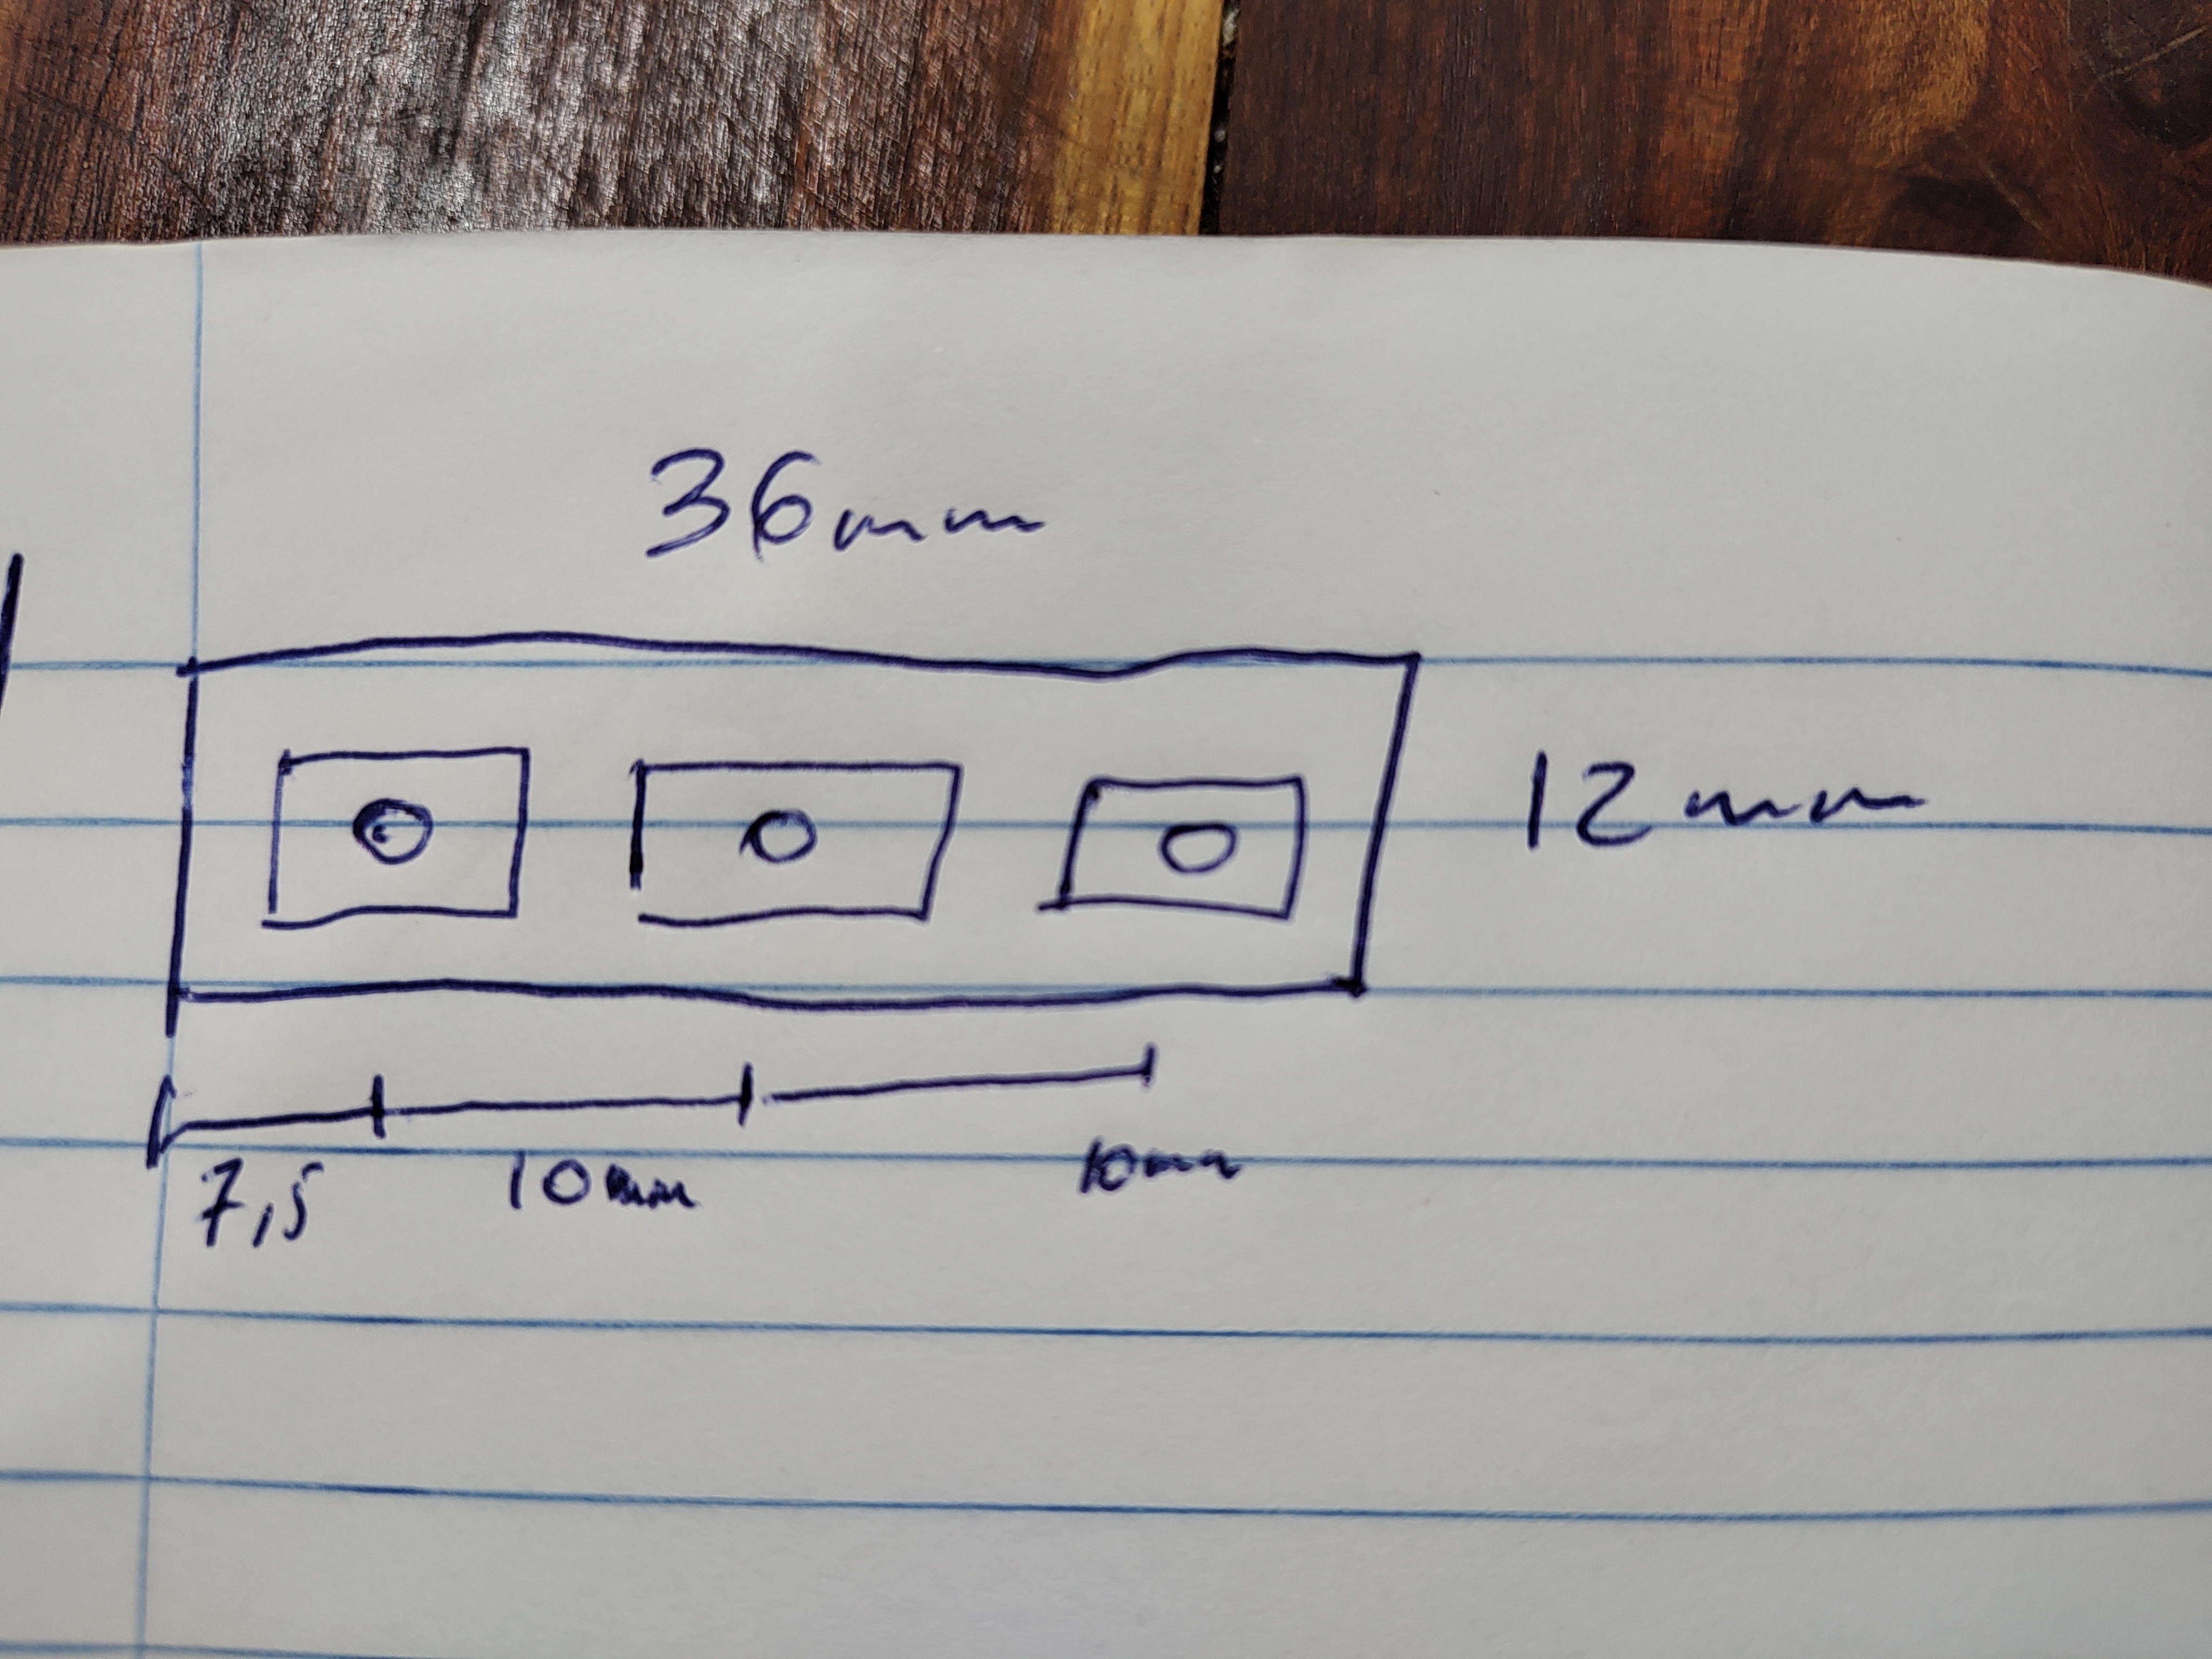 36mm
12mm
7,5 10mm 10mm